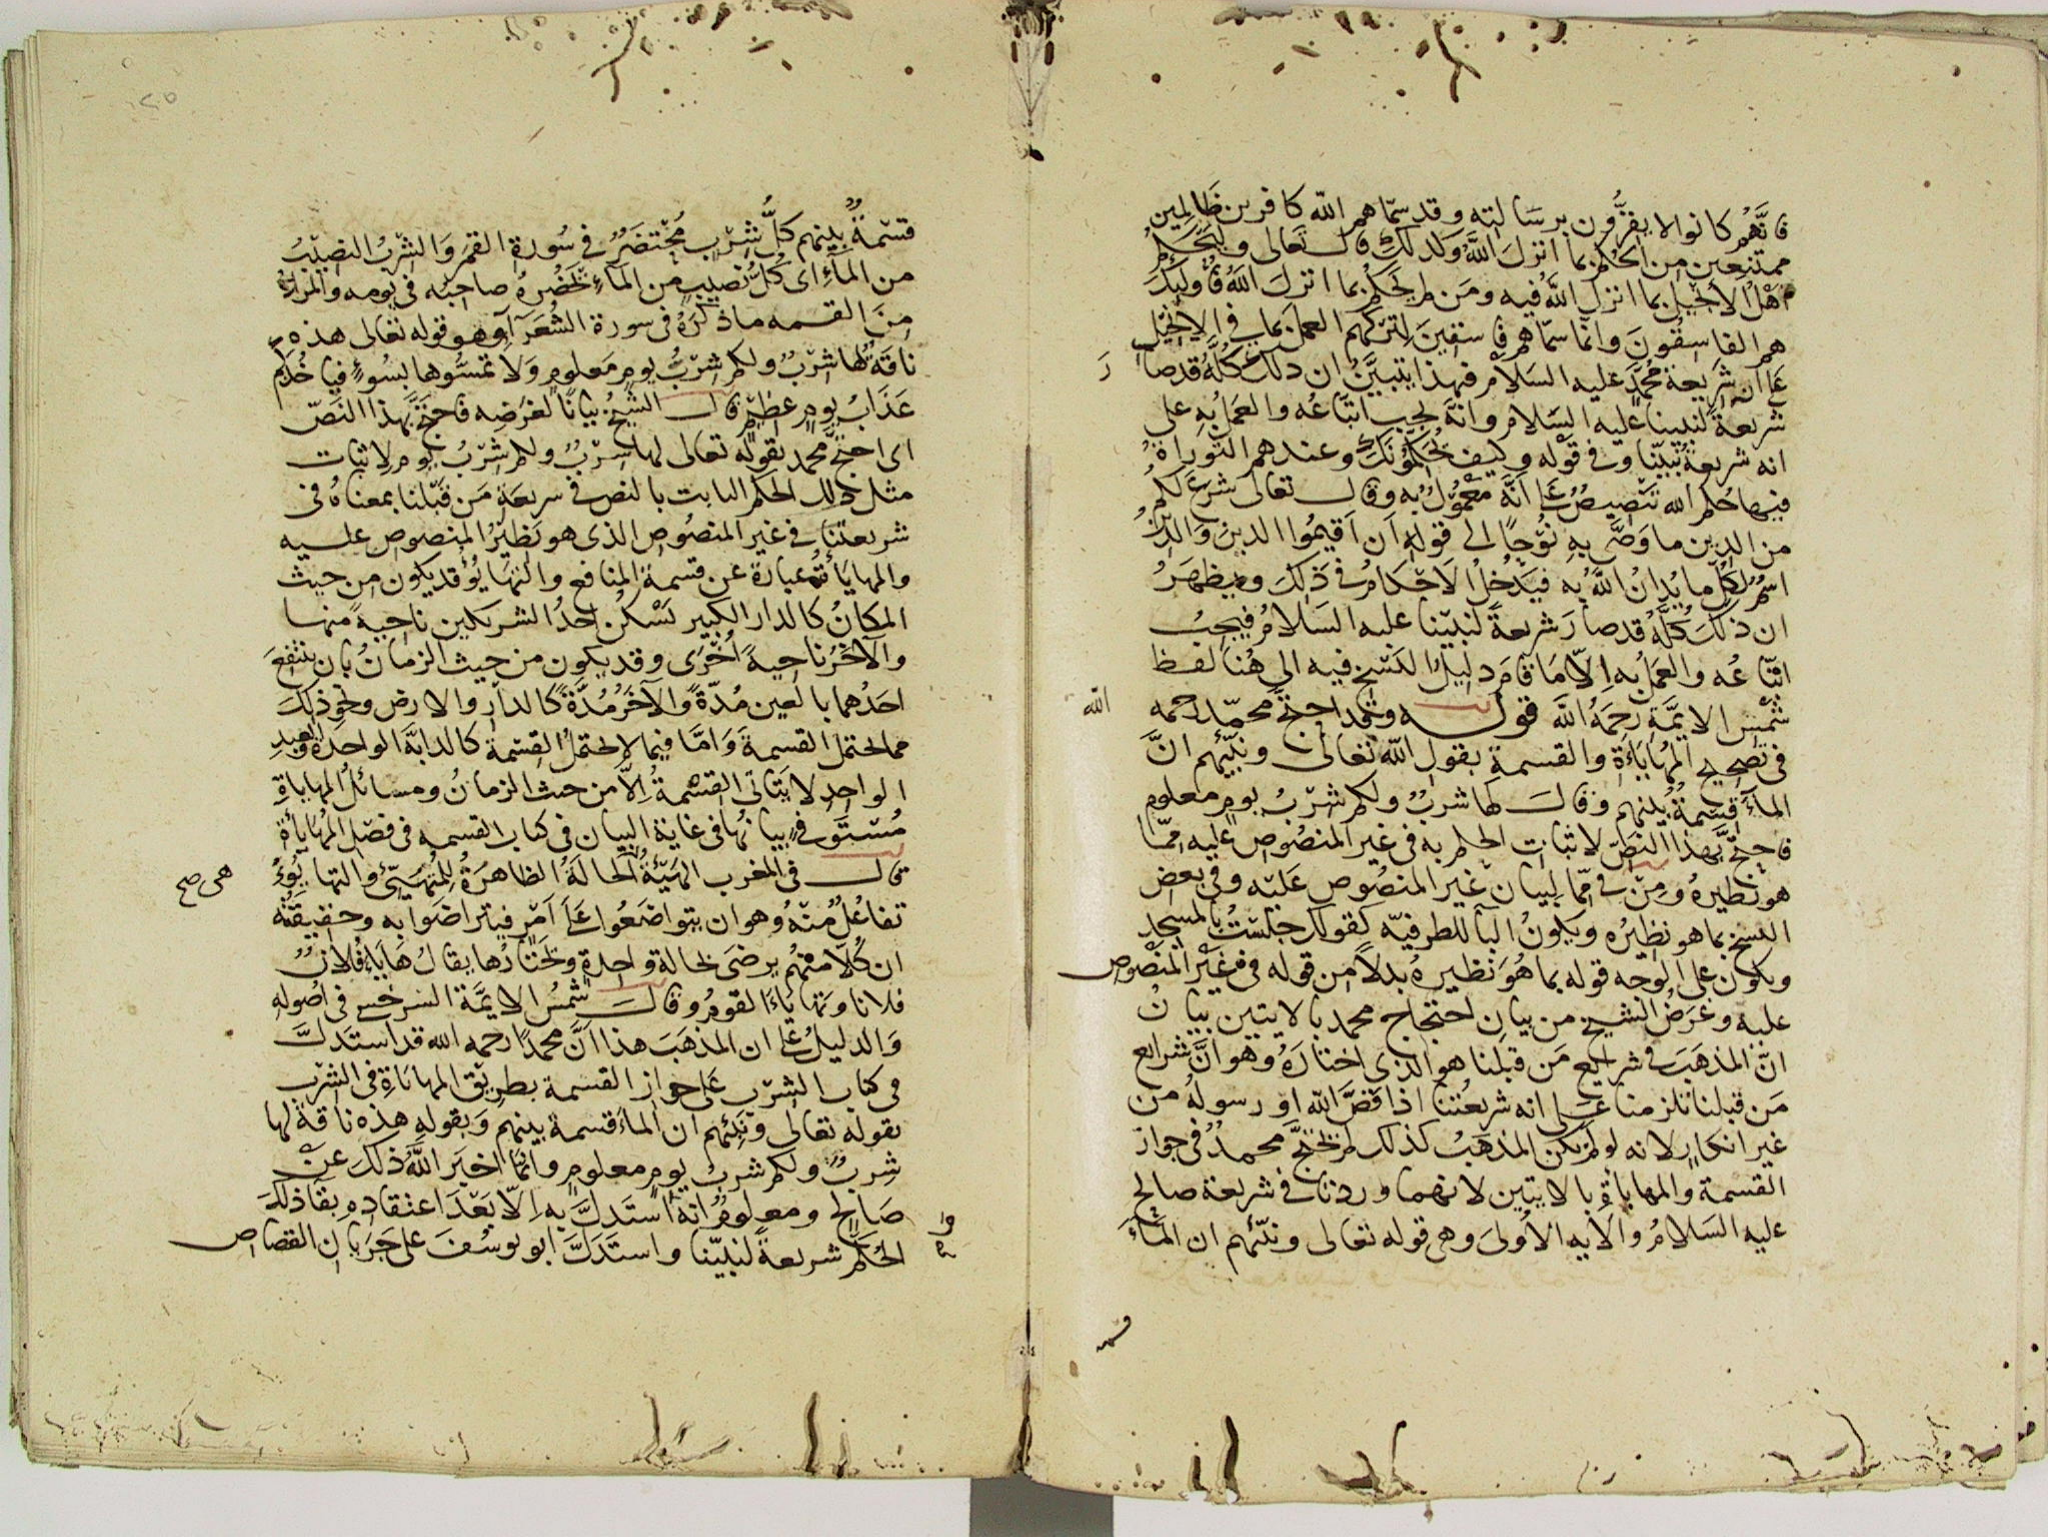 فانهم كانوا لا يقرون برسالته وقد سماهم الله كافرين ظالمين
ممتنعين من الحكم بما انزل الله ولذلك قال تعالى وليحكم
اهل الانجيل بما انزل الله فيه ومن لم يحكم بما انزل الله فاوليك
هم الفاسقون وانما سماهم فاسقين لتركهم العمل بما في الانجيل
على ان شريعة محمد عليه السلام فبهذا يتبين ان ذلك كله قد صا
ر
شريعة لنبينا عليه السلام وانه يجب اتباعه والعمل به على
انه شريعة نبينا وفي قوله وكيف يحكمونك وعندهم التوراة
فيها حكم الله تنصيص على انه معمول به وقال تعالى شرع لكم
من الدين ما وصى به نوحا الى قوله ان اقيموا الدين والدين
اسم لكل ما يدان الله به فيدخل الاحكام في ذلك ويظهر
ان ذلك كله قد صار شريعة لنبينا عليه السلام فيجب
اتباعه والعمل به الا ما قام دليل النسخ فيه الى هنا لفظ
شمس الايمة رحمه الله قوله وقد احتج محمد رحمه
الله
في تصحيح المهاياة والقسمة بقول الله تعالى ونبئهم ان
الماء قسمة بينهم وقال لها شرب ولكم شرب يوم معلوم
فاحتج بهذا النص لاثبات الحكم به في غير المنصوص عليه مما
هو نظيره ومن في مما لبيان غير المنصوص عليه وفي بعض
النسخ بما هو نظيره ويكون البا للظرفية كقولك جلست بالمسجد
ويكون على الوجه قوله بما هو نظيره بدلا من قوله في غير المنصوص
عليه وغرض الشيخ من بيان احتجاج محمد بالايتين بيان
ان المذهب في شرايع من قبلنا هو الذي اختاره وهو ان شرايع
من قبلنا تلزمنا على انه شريعتنا اذا قص الله او رسوله من
غير انكار لانه لو لم يكن المذهب كذلك لم يحتج محمد في جواز
القسمة والمهاياة بالايتين لانهما وردتا في شريعة صالح
عليه السلام والايه الاولى وهي قوله تعالى ونبئهم ان الماء
قسمة
قسمة بينهم كل شرب محتضر في سورة القمر والشرب النصيب
من الماء اى كل نصيب من الماء يحضره صاحبه في يومه والمراد
من القسمه ما ذكره في سورة الشعراء وهو قوله تعالى هذه
ناقة لها شرب ولكم شرب يوم معلوم ولا تمسوها بسوء فياخذكم
عذاب يوم عظيم قال الشيخ بيانا لغرضه فاحتج بهذا النص
اى احتج محمد بقوله تعالى لها شرب ولكم شرب يوم لاثبات
مثل ذلك الحكم الثابت بالنص في شريعة من قبلنا بمعناه في
شريعتنا في غير المنصوص الذى هو نظير المنصوص عليه
والمهاياة عبارة عن قسمة المنافع والتهايؤ قد يكون من حيث
المكان كالدار الكبير يسكن احد الشريكين ناحية منها
والآخر ناحية اخرى وقد يكون من حيث الزمان بان ينتفع
احدهما بالعين مدة والآخر مدة كالدار والارض ونحو ذلك
مما يحتمل القسمة واما فيما لا يحتمل القسمة كالدابة الواحدة والعبد
الواحد لا يتاتى القسمة الا من حيث الزمان ومسائل المهاياة
مستوفى بيانها في غاية البيان في كتاب القسمه في فصل المهاياة
قال في المغرب الهيئة الحالة الظاهرة للمتهيئ والتهايؤ
هى صح
تفاعل منه وهو ان يتواضعوا على امر فيتراضوا به وحقيقته
ان كلا منهم يرضى بحالة واحدة ويختارها يقال هايا فلان
فلانا وتهاياء القوم وقال شمس الايمة السرخسي في اصوله
والدليل على ان المذهب هذا ان محمدا رحمه الله قد استدل
في كتاب الشرب على جواز القسمة بطريق المهاياة في الشرب
بقوله تعالى ونبئهم ان الماء قسمة بينهم وبقوله هذه ناقة لها
شرب ولكم شرب يوم معلوم وانما اخبر الله ذلك عن
صالح ومعلوم انه ما استدل به الا بعد اعتقاده بقا ذلك
الحكم شريعة لنبينا واستدل ابو يوسف على جريان القصاص